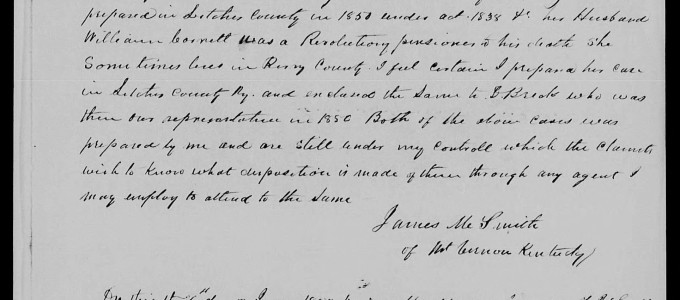 prepared in Letcher County in 1850 under act 1838 &c her Husband
William Cornett was a Revolutiony pensioner to his death She
Sometimes lives in Perry County. I feel certain I prepared her case
in Letcher County Ky. and enclosed the Same to D Breck who was
then our representative in 1850 Both of the above cases was
prepared by me and are still under my controll which the claments
wish to know what disposition is made of them through any agent I
may employ to attend to the Same
James Mc Smith
of Mt Vernon Kentucky